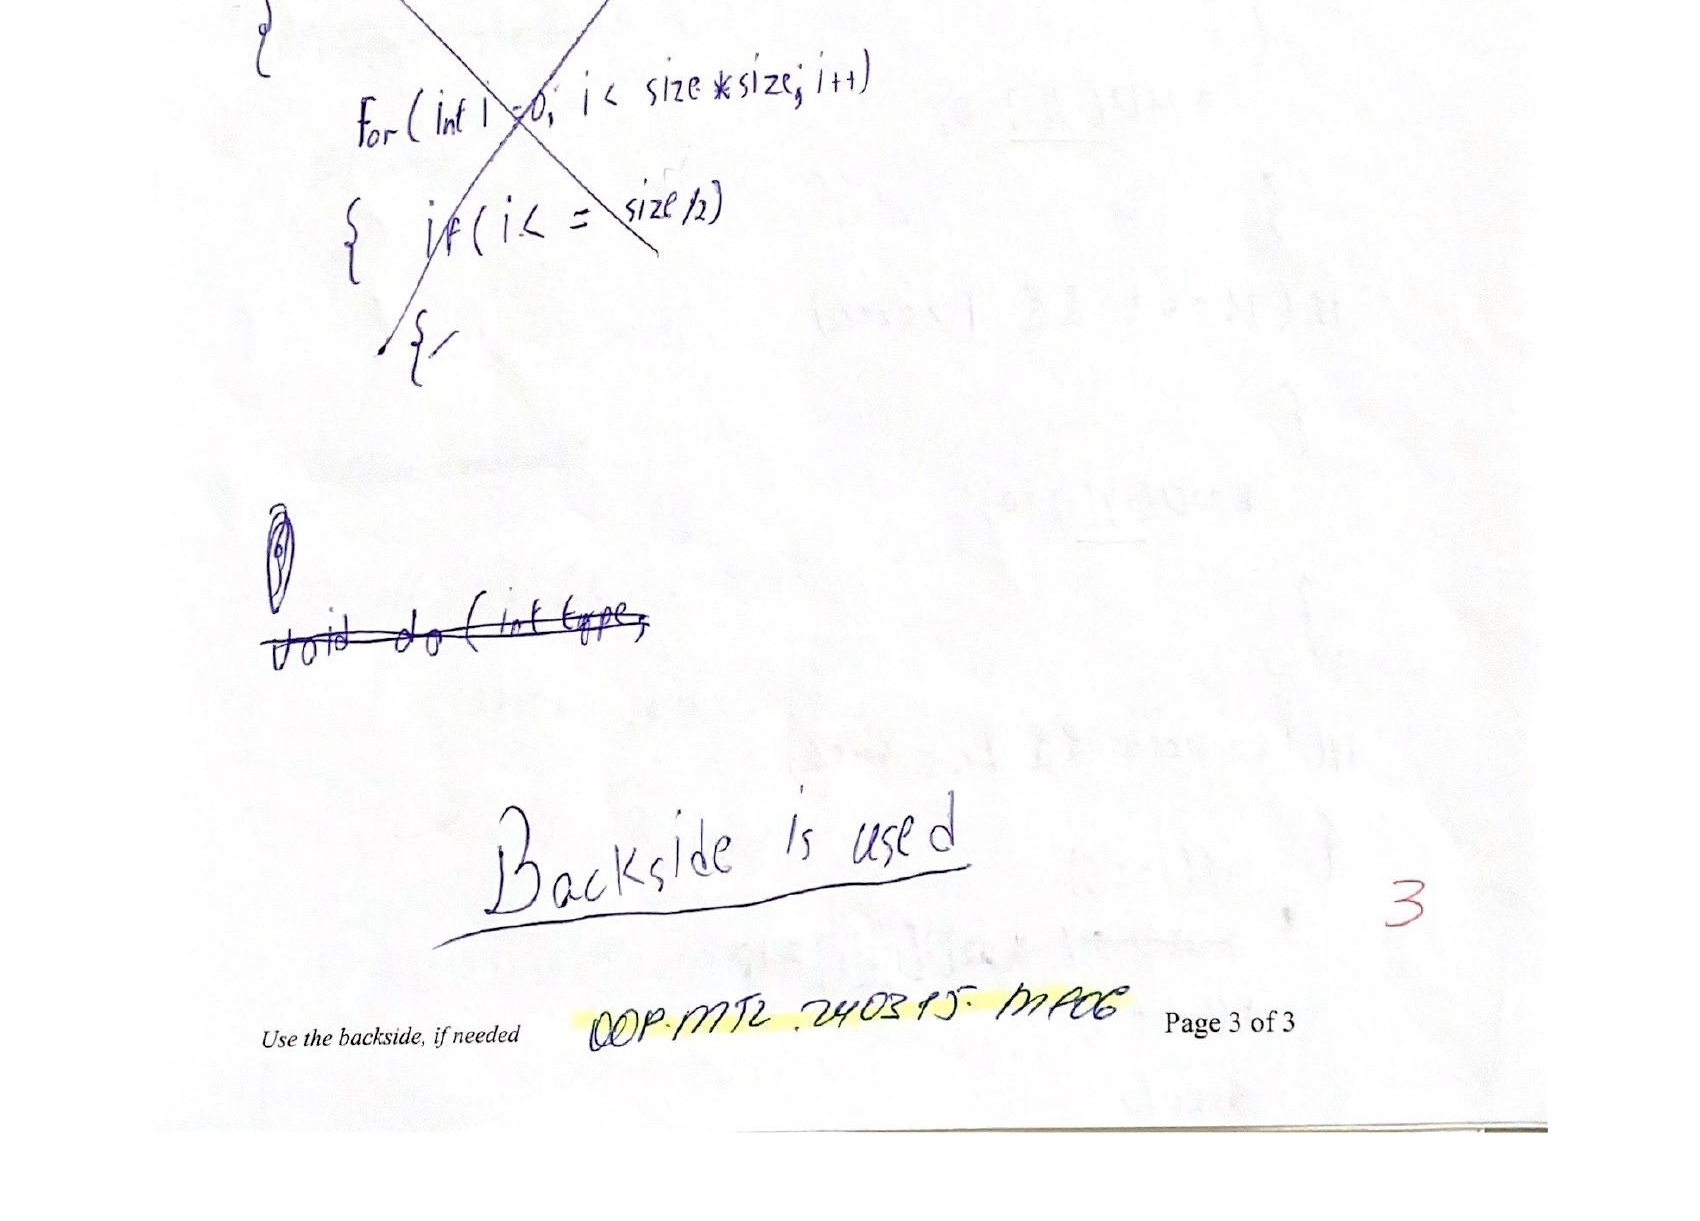 {
For ( int i = 0; i < size * size; i++)
{ if ( i < = size /2)
{
void do ( int type,
Backside is used
3
Use the backside, if needed OOP.MT2.240315.MP06 Page 3 of 3